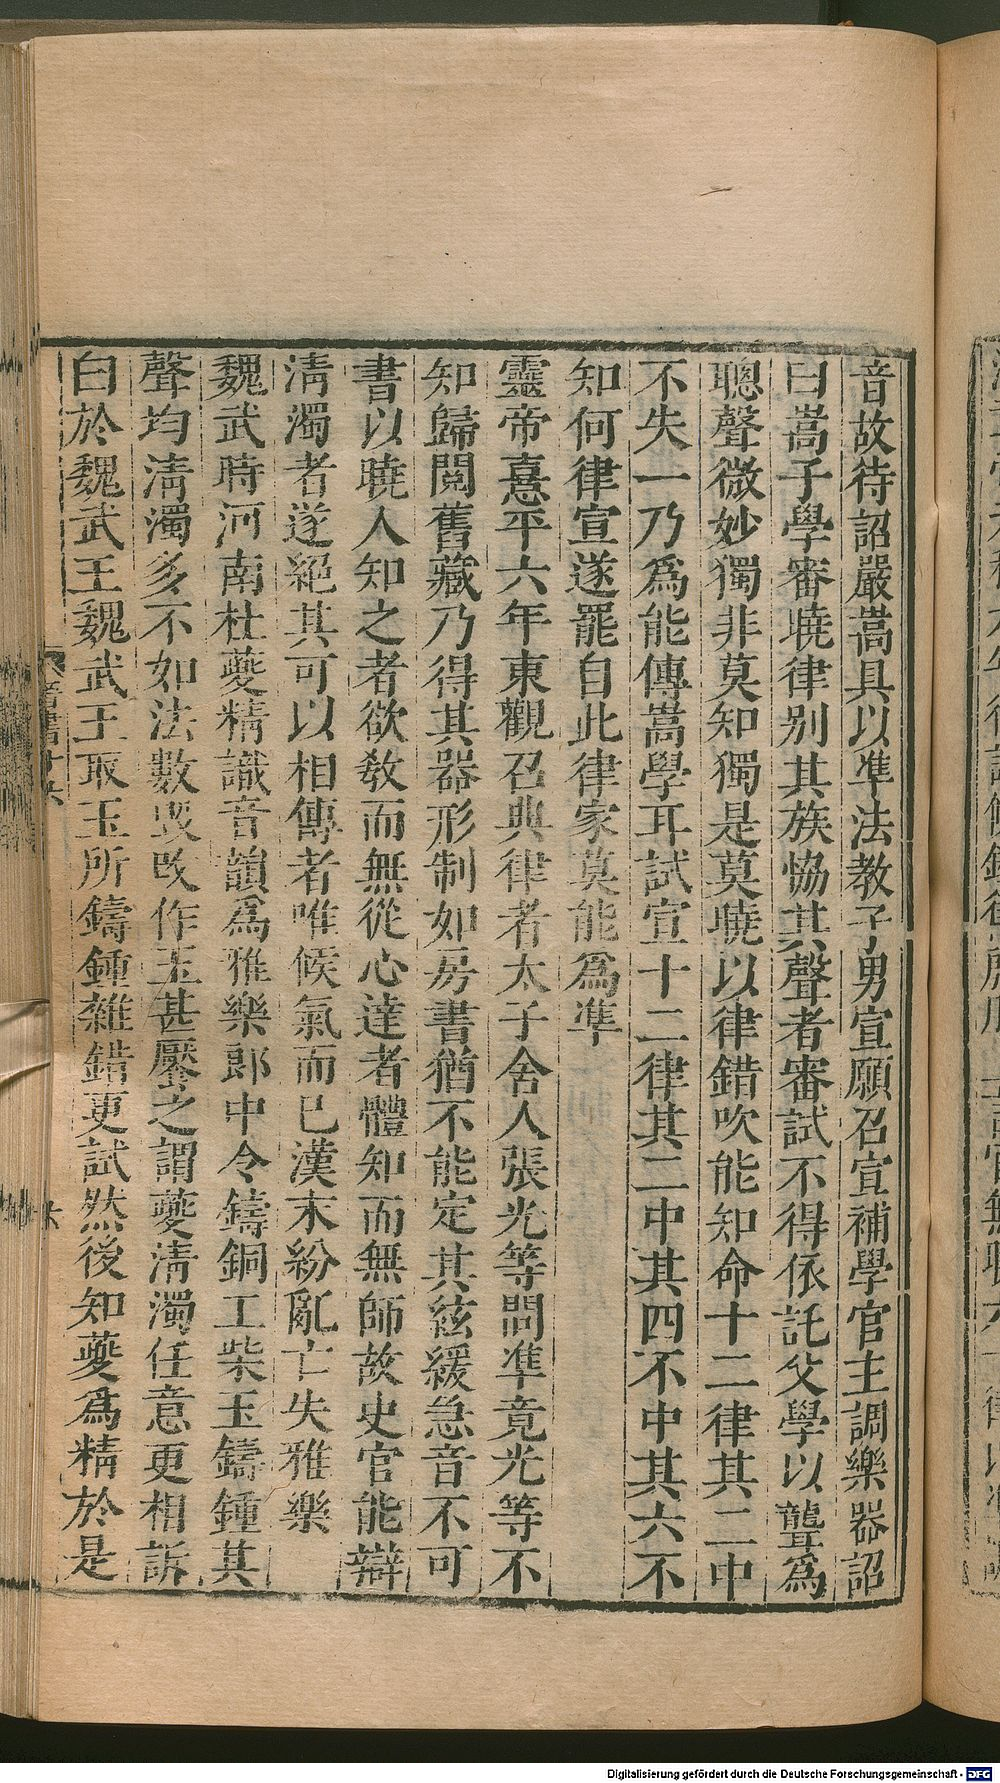 音故待詔嚴嵩具以準法教子男宣願召宣補學官主調樂器詔
曰嵩子學審曉律别其族恊其聲者審試不得依託父學以聾爲
聰聲微妙獨非莫知獨是莫曉以律錯吹能知命十二律其二中
不失一乃爲能傳嵩學耳試宣十二律其二中其四不中其六不
知何律宣遂罷自此律家莫能爲準
靈帝熹平六年東觀召典律者太子舍人張光等問準竟光等不
知歸閱舊藏乃得其器形制如房書猶不能定其絃緩急音不可
書以曉人知之者欲敎而無從心達者體知而無師故史官能辯
清濁者遂絕其可以相傳者唯候氣而已漢末紛亂亡失雅樂
魏武時河南杜夔精識音韻爲雅樂郎中令鑄銅工柴玉鑄鍾其
聲均清濁多不如法數毀改作玉甚厭之謂夔清濁任意更相訴
白於魏武王魏武王取玉所鑄鍾雜錯更試然後知夔爲精於是
Digitalisierung gefördert durch die Deutsche Forschungsgemeinschaft - DFG